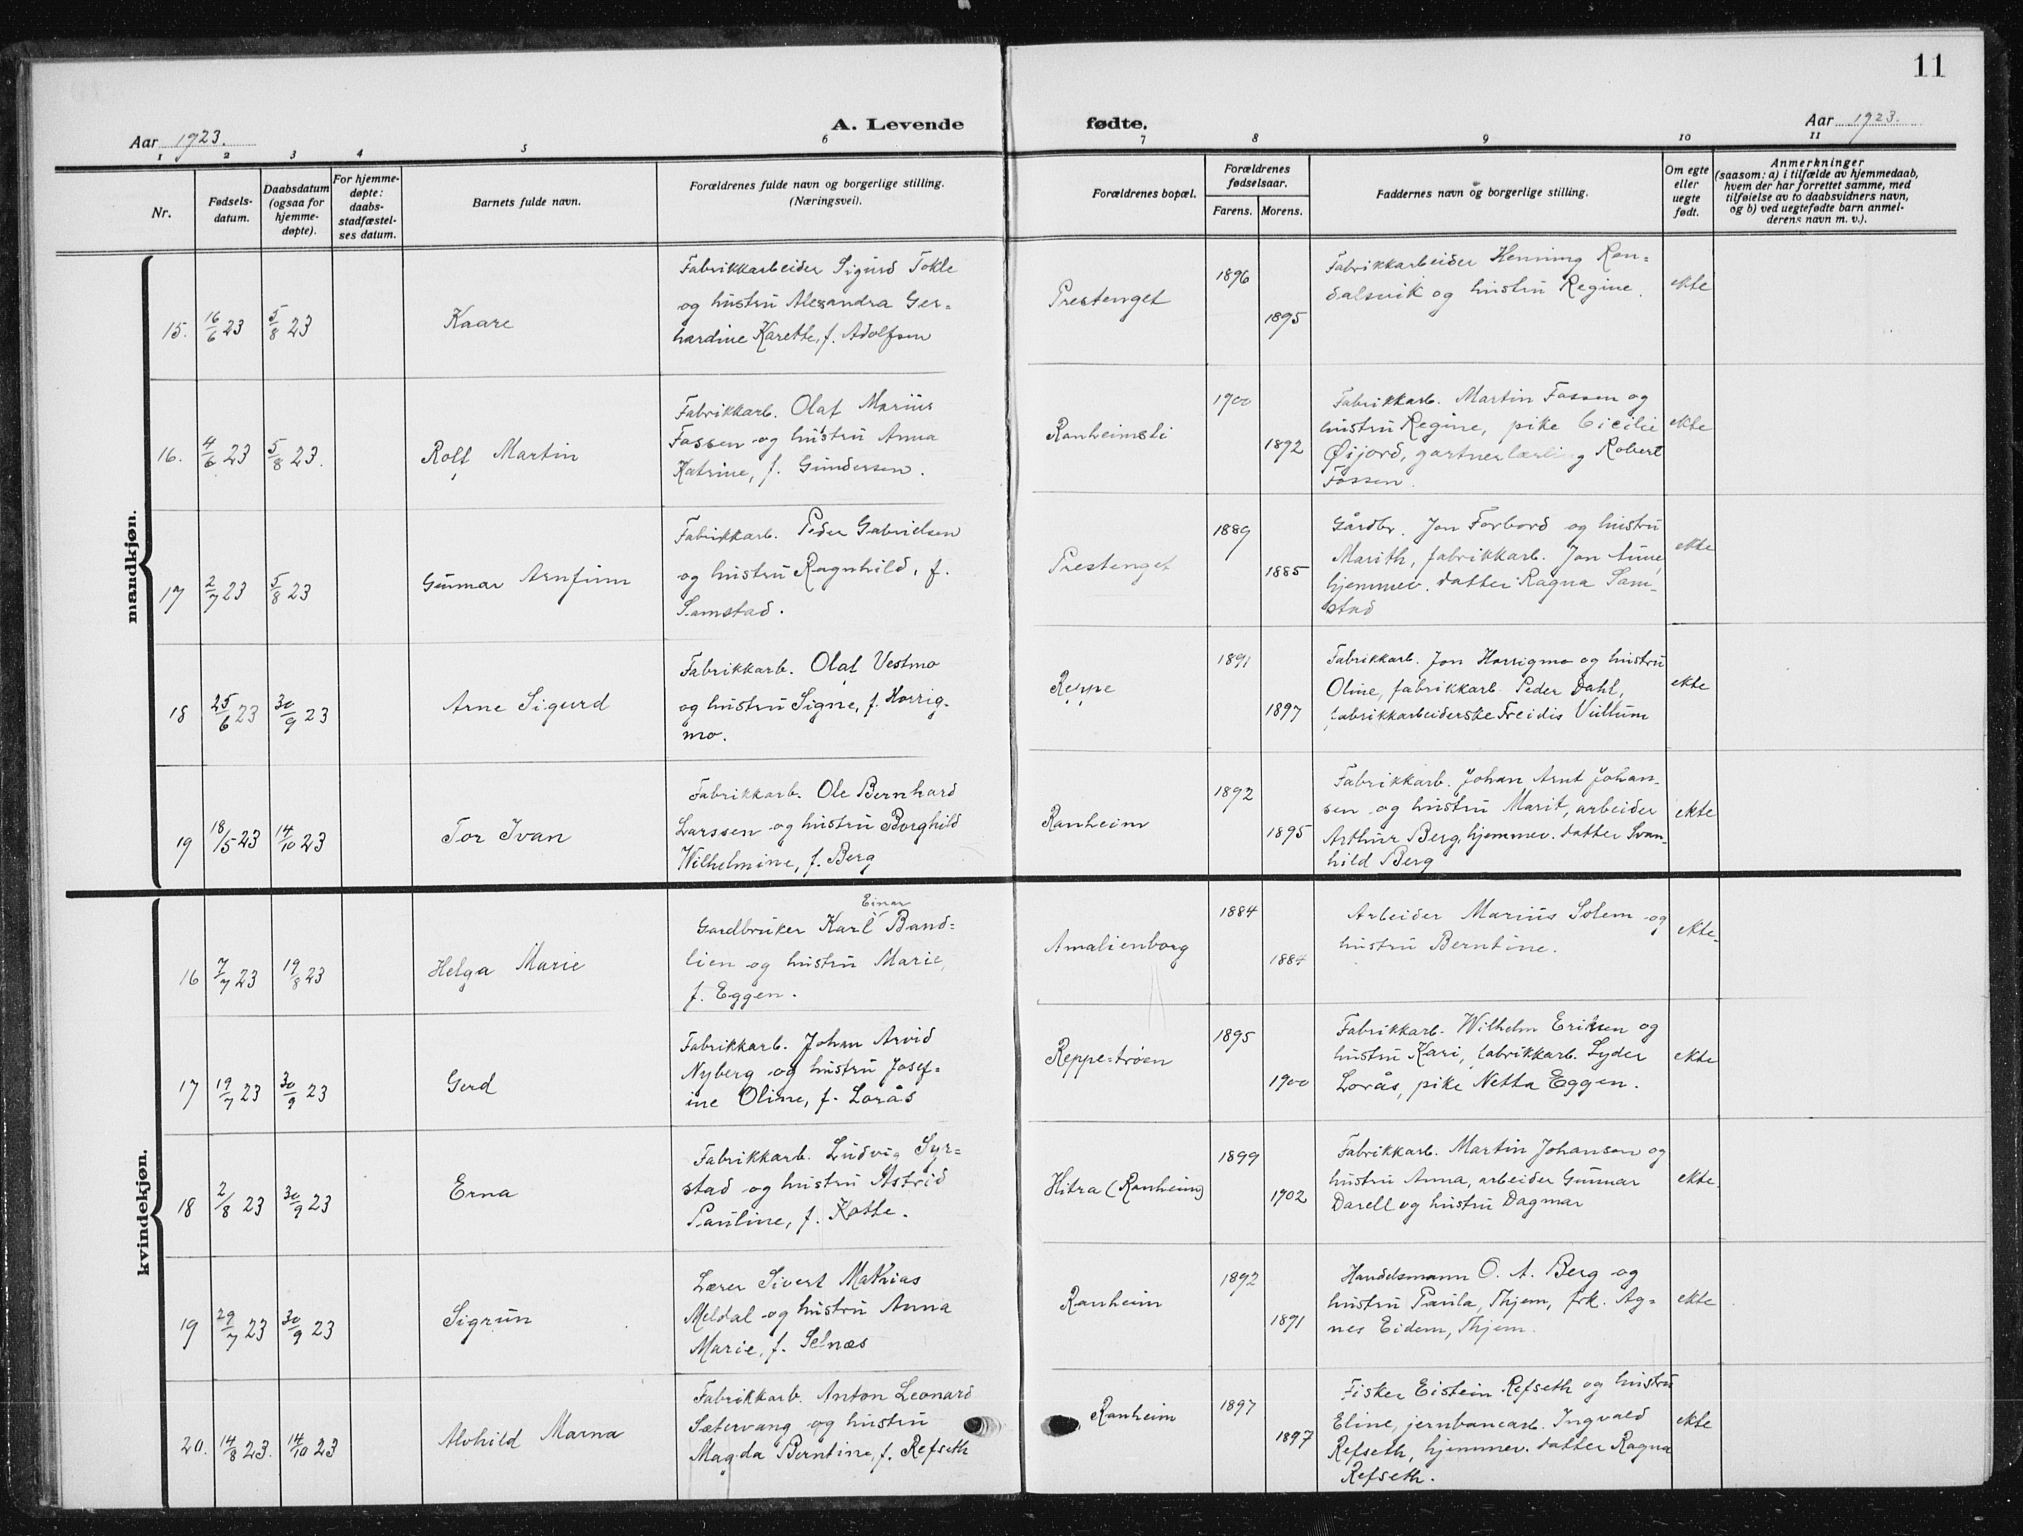 11
Aar 1923.
A. Levende fødte.
Aar 1923.
1 2 3 4 5 6 7 8 9 10 11
Nr.
Fødsels-
datum.
Daabsdatum
(ogsaa for
hjemme-
døpte).
For hjemme-
døpte:
daabs-
stadfæstel-
ses datum.
Barnets fulde navn.
Forældrenes fulde navn og borgerlige stilling.
(Næringsvei).
Forældrenes bopæl.
Forældrenes
fødselsaar.
Farens. Morens.
Faddernes navn og borgerlige stilling.
Om egte
eller
uegte
født.
Anmerkninger
(saasom: a) i tilfælde av hjemmedaab,
hvem der har forrettet samme, med
tilføielse av to daabsvidners navn,
og b) ved uegtefødte barn anmel-
derens navn m. v.).
mandkjøn.
15. 16/6 23 5/8 23 Kaare
Fabrikkarbeider Sigurd Tokle
og hustru Alexandra Ger-
hardine Karette, f. Adolfsen
Prestenget 1896 1895
Fabrikkarbeider Henning Ran=
dalsvik og hustru Regine.
ekte
16. 4/6 23 5/8 23. Rolf Martin
Fabrikkarb. Olaf Marius
Fossen og hustru Anna
Katrine, f. Gundersen.
Ranheimsli 1900 1892
Fabrikkarb. Martin Fossen og
hustru Regine, pike Cicilie
Øijord, gartnerlærling Robert
Fossen.
ekte
17 2/7 23 5/8 23 Gunnar Arnfinn
Fabrikkarb. Peder Gabrielsen
og hustru Ragnhild, f.
Samstad.
Prestenget 1889 1885
Gårdbr. Jon Forbord og hustru
Marith, fabrikkarb. Jon Aune,
hjemmev. datter Ragna Sam-
stad
ekte
18 25/6 23 30/9 23 Arne Sigurd
Fabrikkarb. Olaf Vestmo
og hustru Signe, f. Horrig-
mo.
Reppe 1891 1897
Fabrikkarb. Jon Horrigmo og hustru
Oline, fabrikkarb. Peder Dahl,
fabrikkarbeiderske Freidis Vullum
ekte
19 18/5 23 14/10 23 Tor Ivan
Fabrikkarb. Ole Bernhard
Larssen og hustru Borghild
Wilhelmine, f. Berg
Ranheim 1892 1895
Fabrikkarb. Johan Arnt Johan-
sen og hustru Marit, arbeider
Arthur Berg, hjemmev. datter Svan-
hild Berg
ekte
kvindekjøn.
16 7/7 23 19/8 23 Helga Marie
Einar
Gardbruker Karl Band=
lien og hustru Marie,
f. Eggen.
Amalienborg 1884 1884
Arbeider Marius Solem og
hustru Berntine.
ekte.
17 19/7 23 30/9 23 Gerd
Fabrikkarb. Johan Arvid
Nyberg og hustru Josef-
ine Oline, f. Lorås
Reppe=trøen 1895 1900
Fabrikkarb. Wilhelm Eriksen og
hustru Kari, fabrikkarb. Lyder
Lorås, pike Netta Eggen.
ekte
18 2/8 23 30/9 23 Erna
Fabrikkarb. Ludvig Syr=
stad og hustru Astrid
Pauline, f. Kotte.
Hitra (Ranheim) 1899 1902
Fabrikkarb. Martin Johansen og
hustru Anna, arbeider Gunnar
Darell og hustru Dagmar
ekte.
19 29/7 23 30/9 23 Sigrun
Lærer Sivert Mathias
Meldal og hustru Anna
Marie, f. Selnæs
Ranheim 1892 1891
Handelsmann O. A. Berg og
hustru Paula, Thjem, frk. Ag-
nes Eidem, Thjem.
ekte
20. 14/8 23. 14/10 23 Alvhild Marna
Fabrikkarb. Anton Leonard
Sætervang og hustru
Magda Berntine, f. Refseth
Ranheim 1897 1897
Fisker Eistein Refseth og hustru
Eline, jernbanearb. Ingvald
Refseth, hjemmev. datter Ragna
Refseth.
ekte